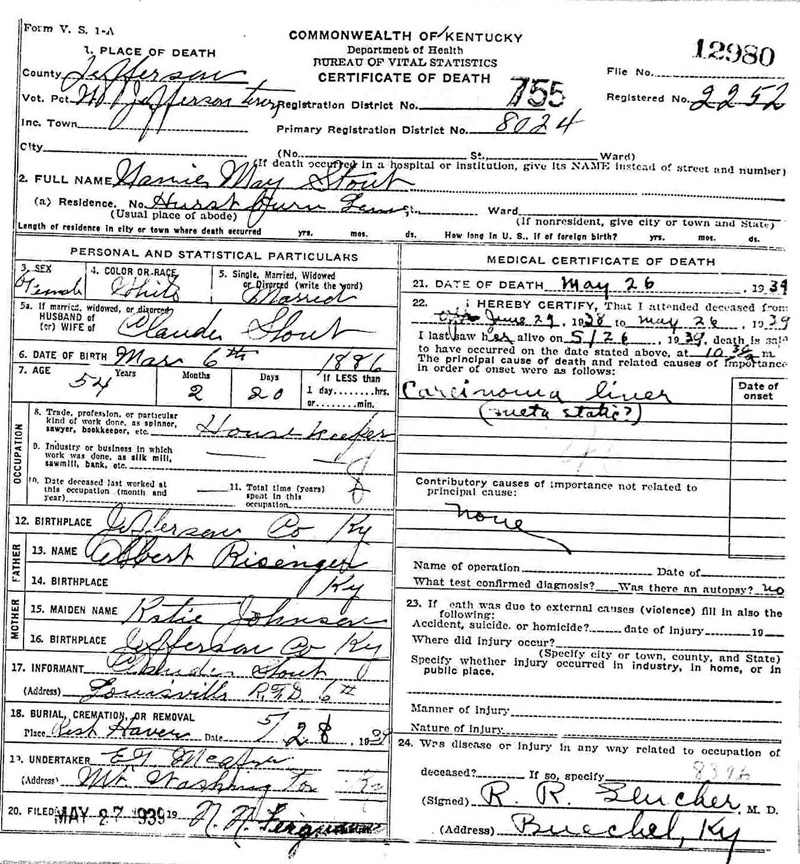 Form V. S. 1-A
COMMONWEALTH OF KENTUCKY
Department of Health
BUREAU OF VITAL STATISTICS
CERTIFICATE OF DEATH
File No. 12980
Registered No. 2252
1. PLACE OF DEATH
County Jefferson
Vot. Pct. Jefferson
Registration District No. 755
Inc. Town
Primary Registration District No. 8024
City (No. St., Ward)
(If death occurred in a hospital or institution, give its NAME instead of street and number)
2. FULL NAME May Stout
(a) Residence. No. Hurst St., Ward.
(Usual place of abode) (If nonresident, give city or town and State)
Length of residence in city or town where death occurred yrs. mos. ds. How long in U. S., if of foreign birth? yrs. mos. ds.
PERSONAL AND STATISTICAL PARTICULARS
3. SEX Female
4. COLOR OR RACE White
5. Single, Married, Widowed or Divorced (write the word) Married
5a. If married, widowed, or divorced
HUSBAND of
(or) WIFE of Claude Stout
6. DATE OF BIRTH Mar 6th 1886
7. AGE 54 Years 2 Months 20 Days If LESS than
1 day, hrs.
or min.
OCCUPATION
8. Trade, profession, or particular
kind of work done, as spinner,
sawyer, bookkeeper, etc. House Keeper
9. Industry or business in which
work was done, as silk mill,
sawmill, bank, etc.
10. Date deceased last worked at
this occupation (month and
year)
11. Total time (years)
spent in this
occupation
12. BIRTHPLACE Jefferson Co Ky
FATHER
13. NAME Albert Risinger
14. BIRTHPLACE Ky
MOTHER
15. MAIDEN NAME Katie Johnson
16. BIRTHPLACE Jefferson Co Ky
17. INFORMANT Claude Stout
(Address) Louisville R.F.D. 6th
18. BURIAL, CREMATION, OR REMOVAL
Place Rest Haven Date 5/28, 1939
19. UNDERTAKER
(Address) Mt Washington Ky
20. FILED MAY 27 1939 19
MEDICAL CERTIFICATE OF DEATH
21. DATE OF DEATH May 26 1939
22. I HEREBY CERTIFY, That I attended deceased from
June 29, 1938 to May 26, 1939
I last saw her alive on 5/26, 1939, death is said
to have occurred on the date stated above, at 10 m
The principal cause of death and related causes of importance
in order of onset were as follows:
Date of
onset
Carcinoma liver
(metastatic?)
Contributory causes of importance not related to
principal cause:
None
Name of operation Date of
What test confirmed diagnosis? Was there an autopsy? no
23. If eath was due to external causes (violence) fill in also the
following:
Accident, suicide, or homicide? date of injury 19
Where did injury occur?
(Specify city or town, county, and State)
Specify whether injury occurred in industry, in home, or in
public place.
Manner of injury
Nature of injury
24. Was disease or injury in any way related to occupation of
deceased? If so, specify 8396
(Signed) R. R. Slucher, M. D.
(Address) Buechel, Ky